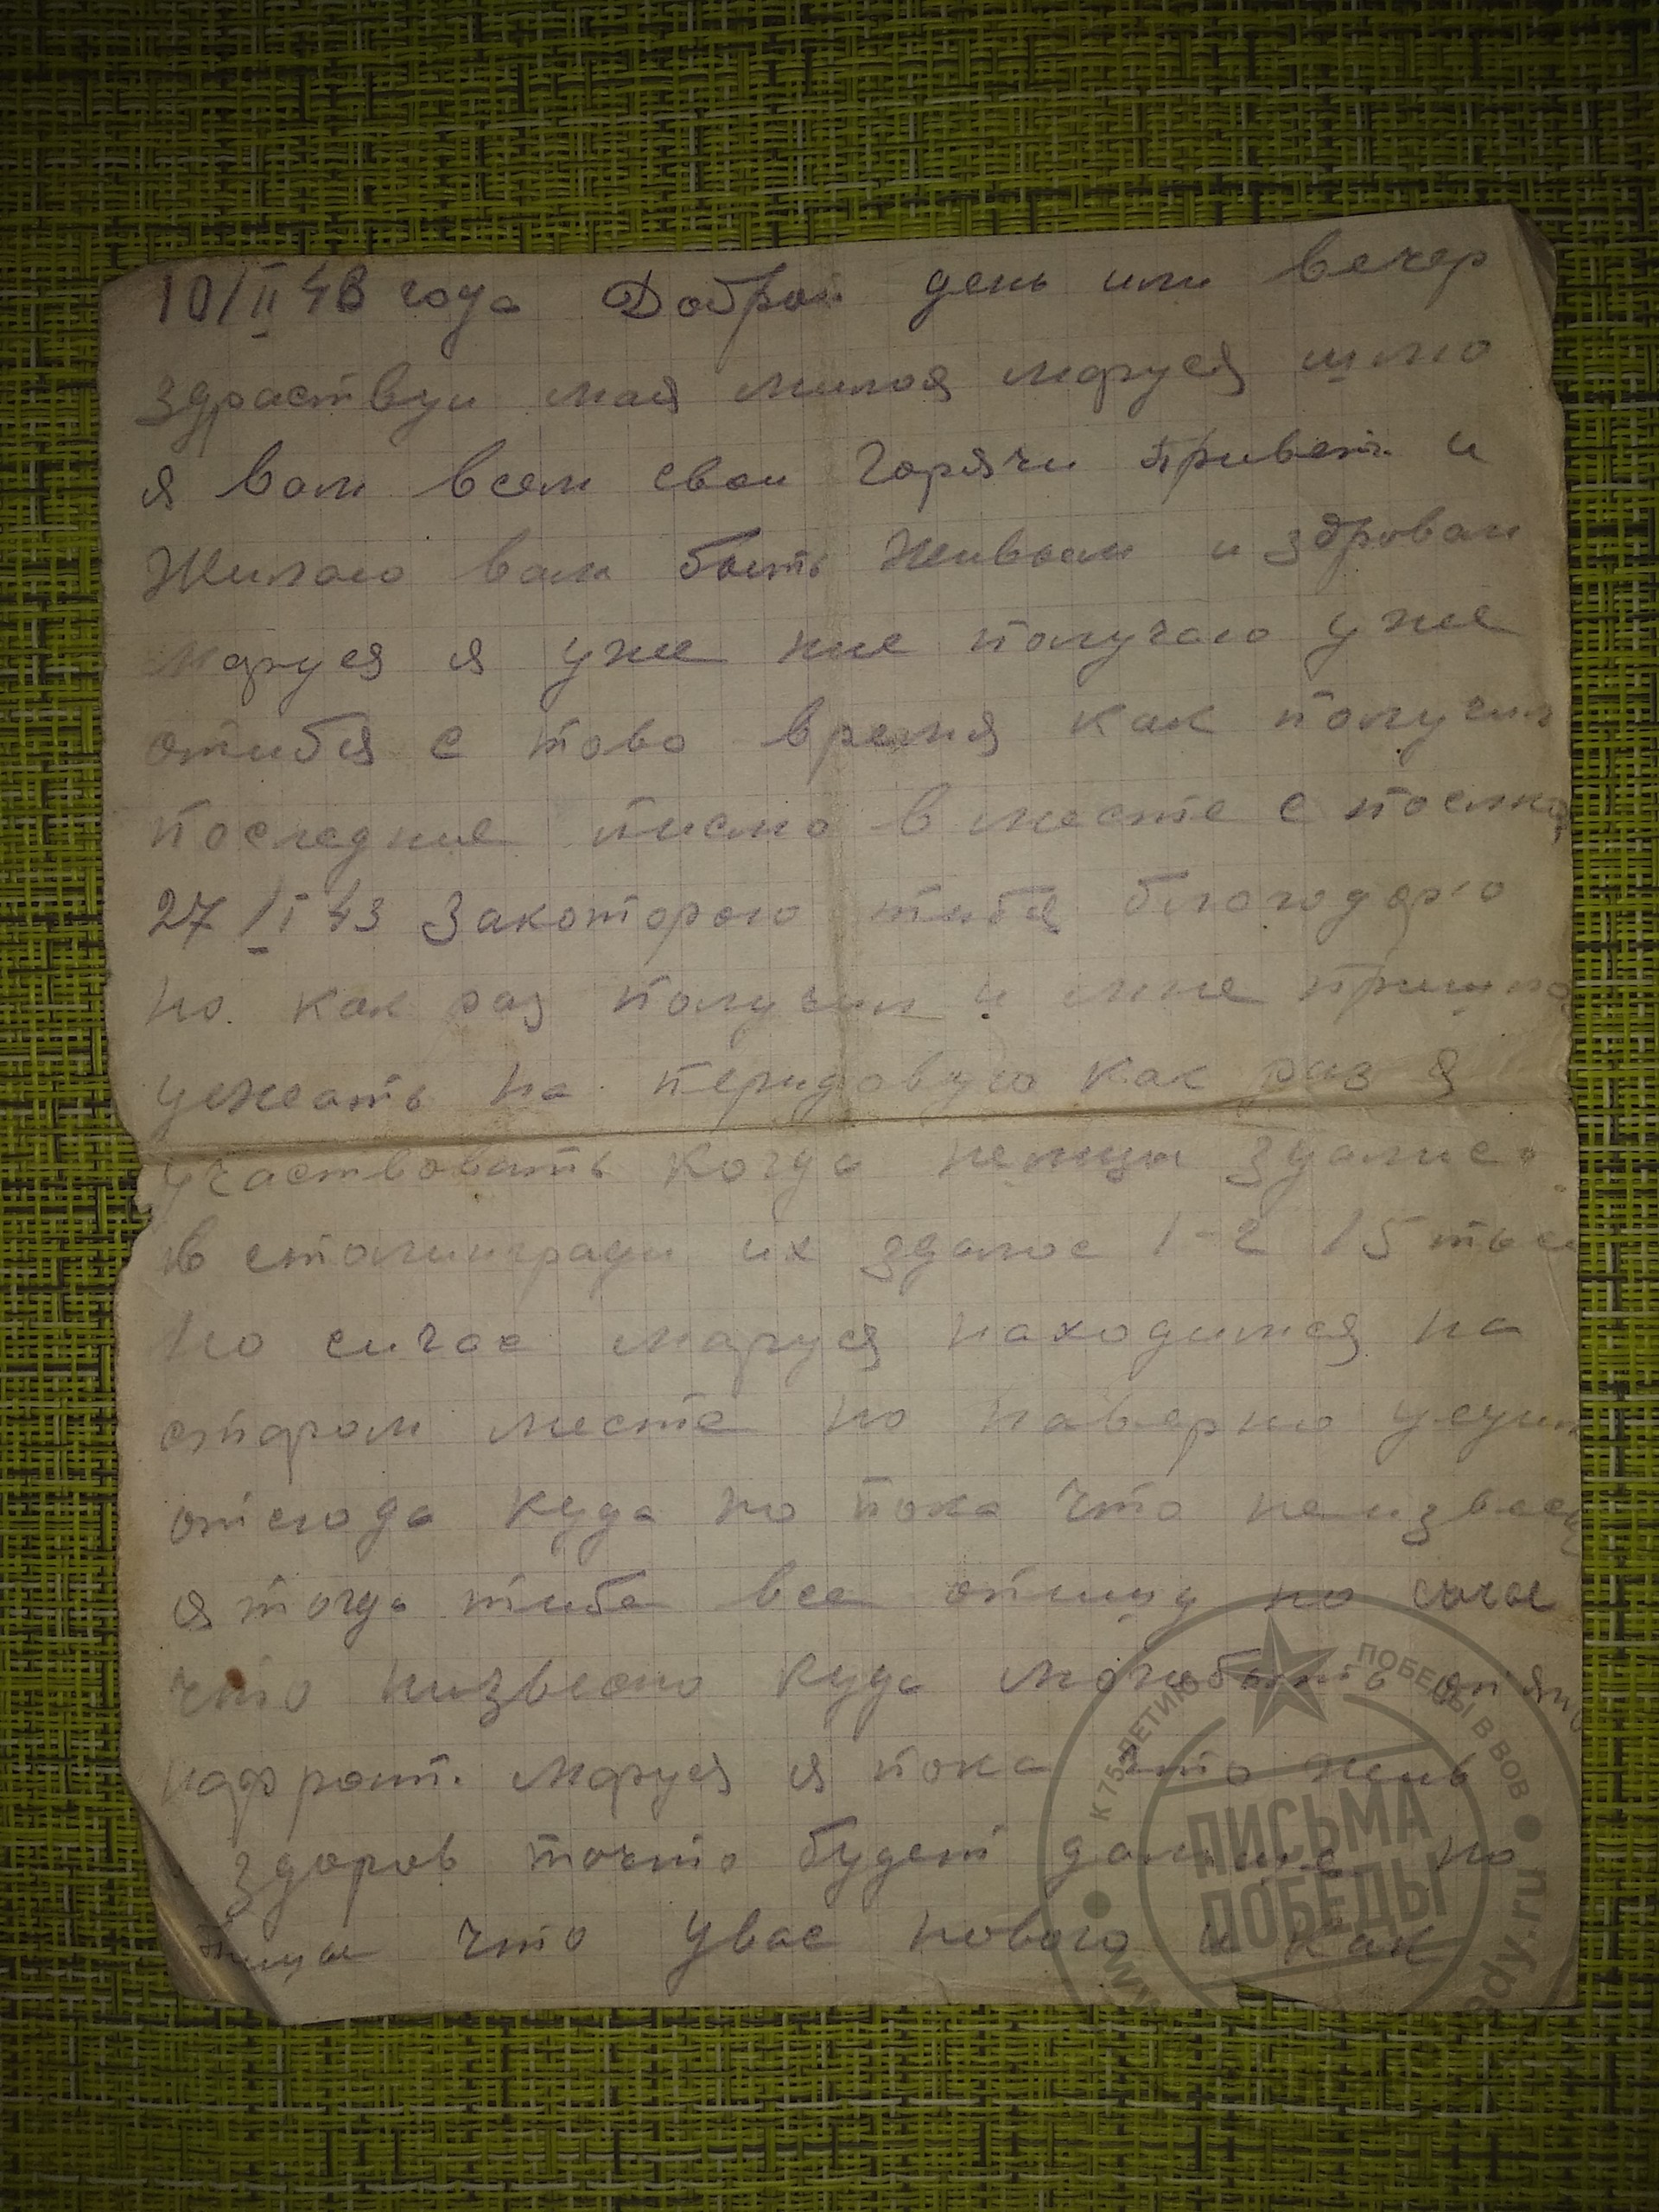 10/II 43 года Доброй день или вечер
здраствуи мая милоя маруся шлю
я вам всем свои горячи привет и
Жилаю вам быть живыми и здровами
маруся я уже ние получаю уже
отибя с тово время как получил
последние писмо в месте с посылкой
27/I 43 Закоторою тибя благодарю
но как раз получил и мне пришло
уежать на перидовую как раз я
участвовать когда немцы здалис
в сталингради их здалос 1-2 15 тыс
но сичас маруся находимся на
старом месте но наверно уедим
отсюда куда но пока что неизвес
я тогда тибе все опишу но сичас
что низвесно куда можбыть опять
нафронт. Маруся я пока что жив
здоров точто будет дальше но
пиши что увас нового и как
К 75-ЛЕТИЮ ПОБЕДЫ В ВОВ
ПИСЬМА
ПОБЕДЫ